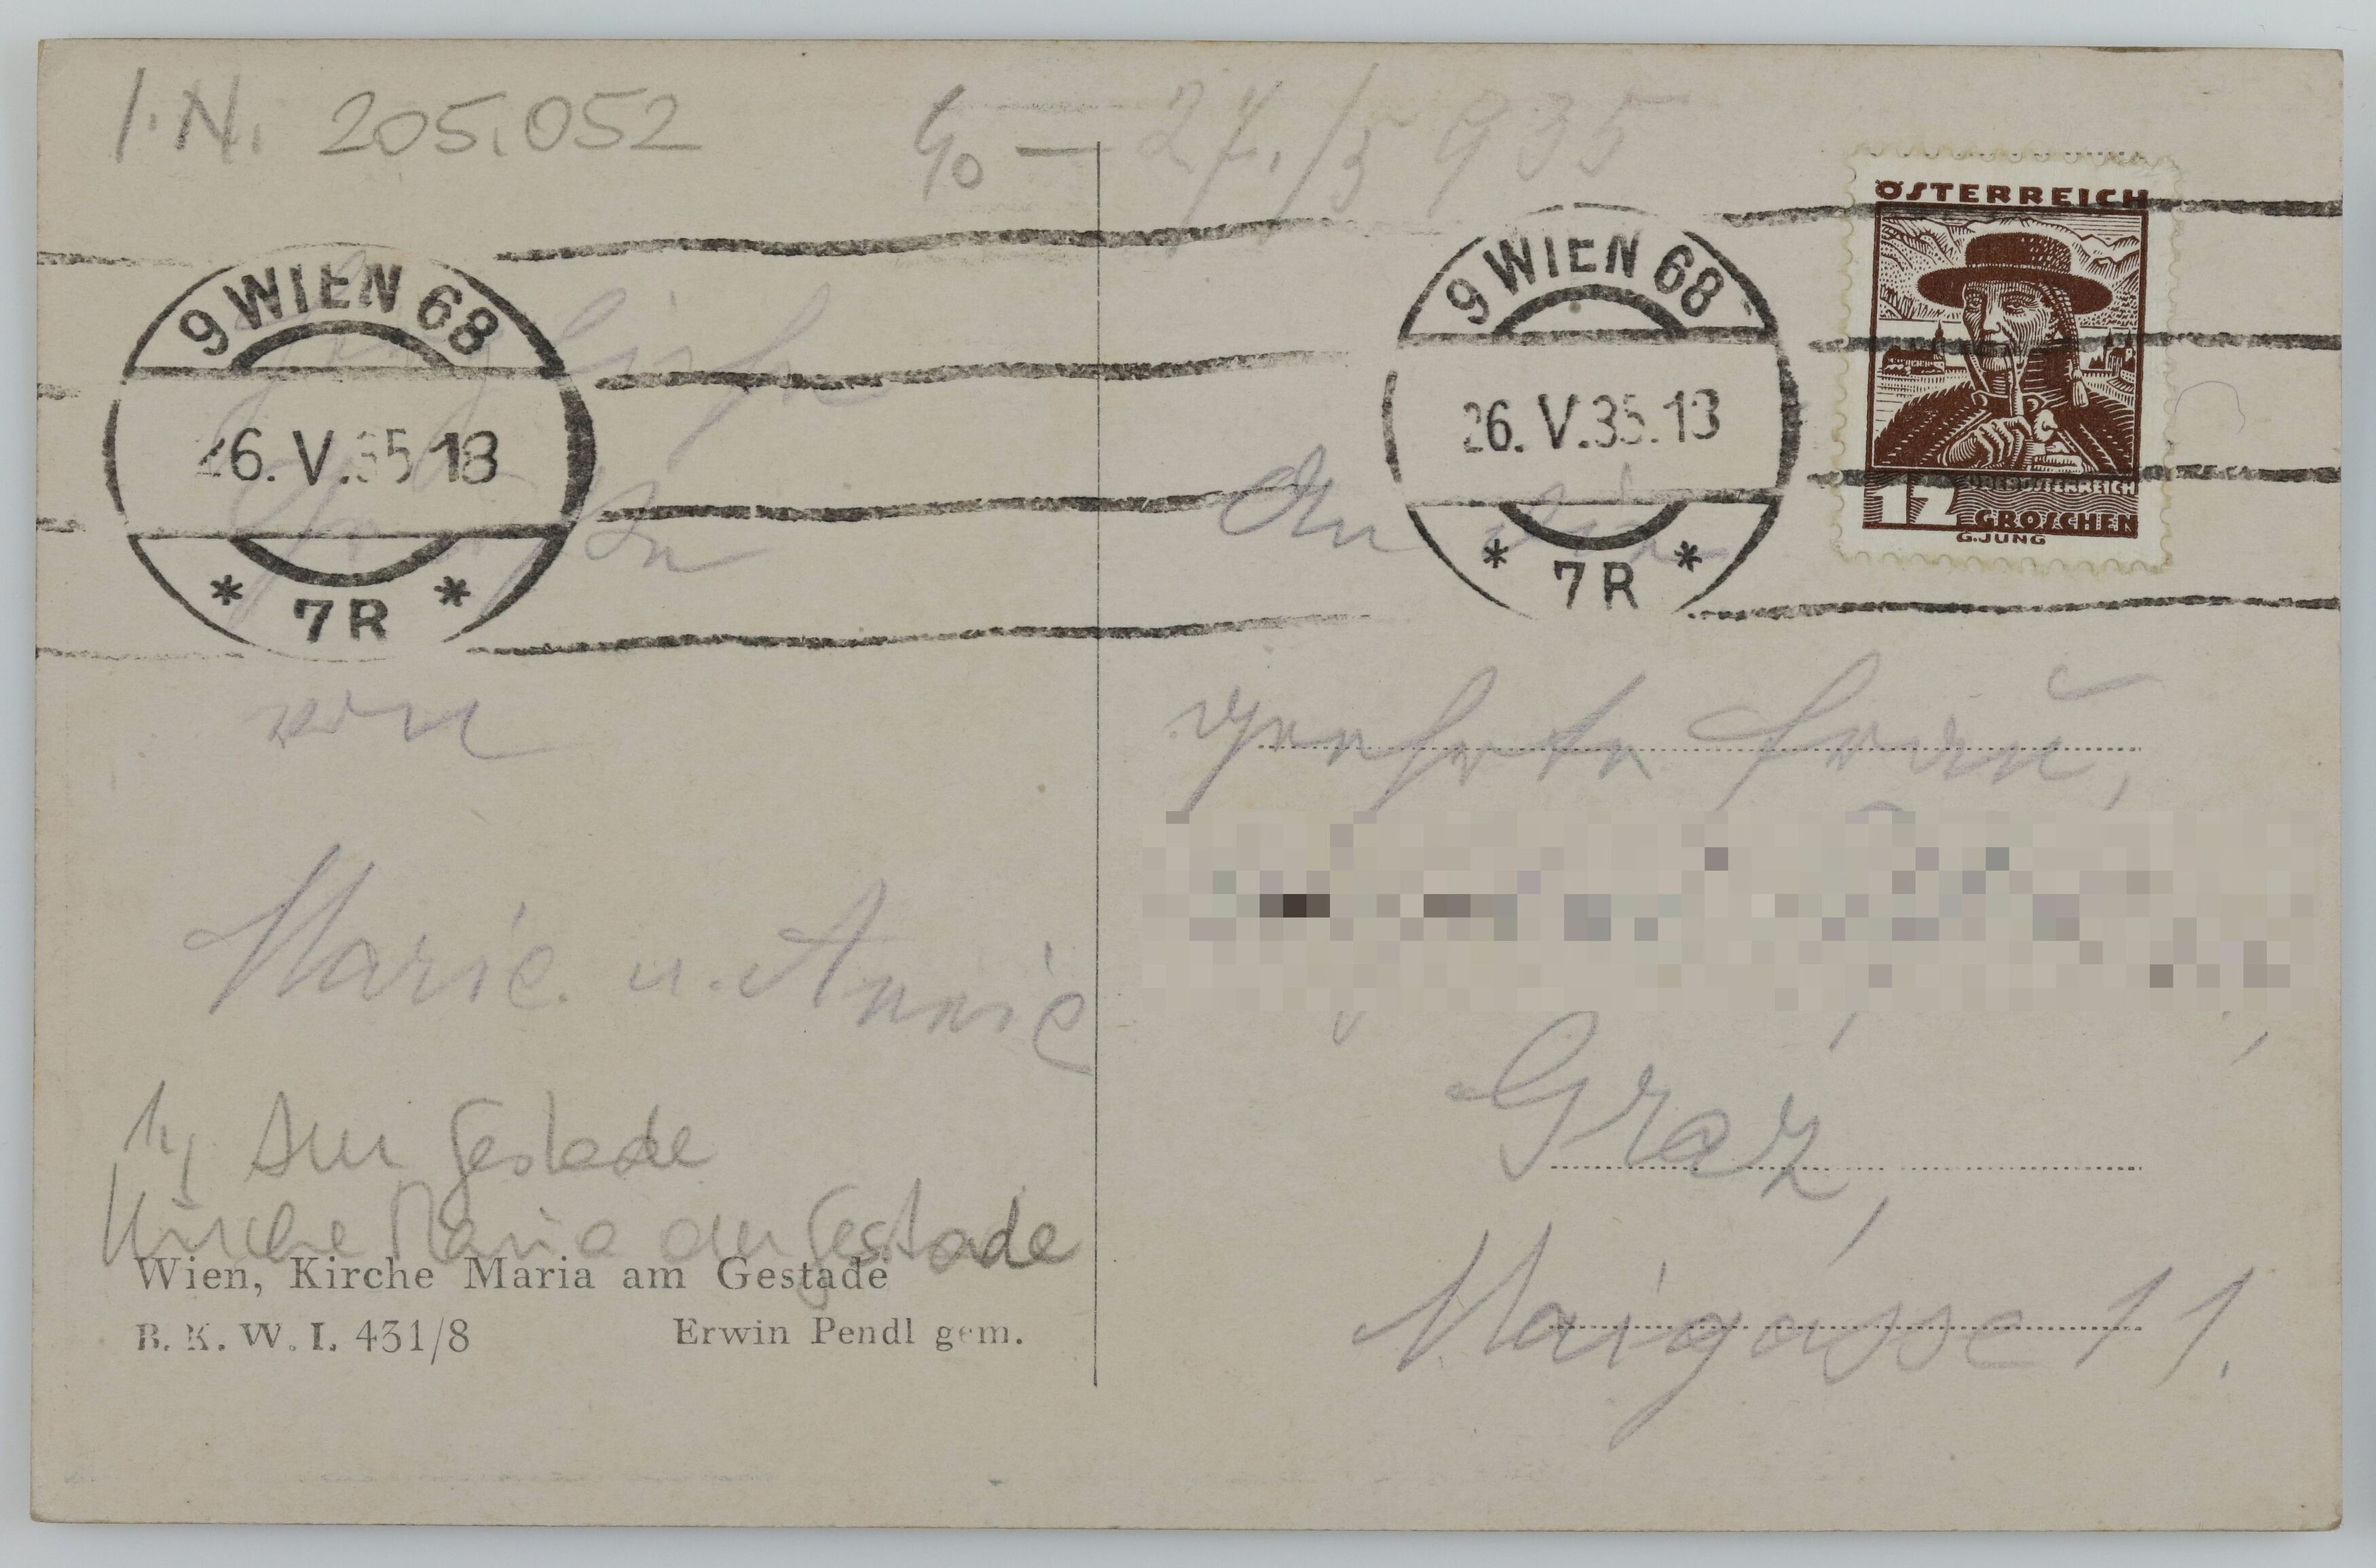 I.N. 205.052
27./5 935
9 WIEN 68
26. V. 35 18
* 7R *
9 WIEN 68
26. V. 35. 18
* 7R *
ÖSTERREICH
OBEROSTERREICH
12 GROSCHEN
G.JUNG
Herzliche
Grüße
von
Marie. u. Annie
1, Am Gestade
Kirche Maria am Gestade
Wien, Kirche Maria am Gestade
B. K. W. I. 431/8
Erwin Pendl gem.
An die
geehrte Frau,
Graz,
Maigasse 11.